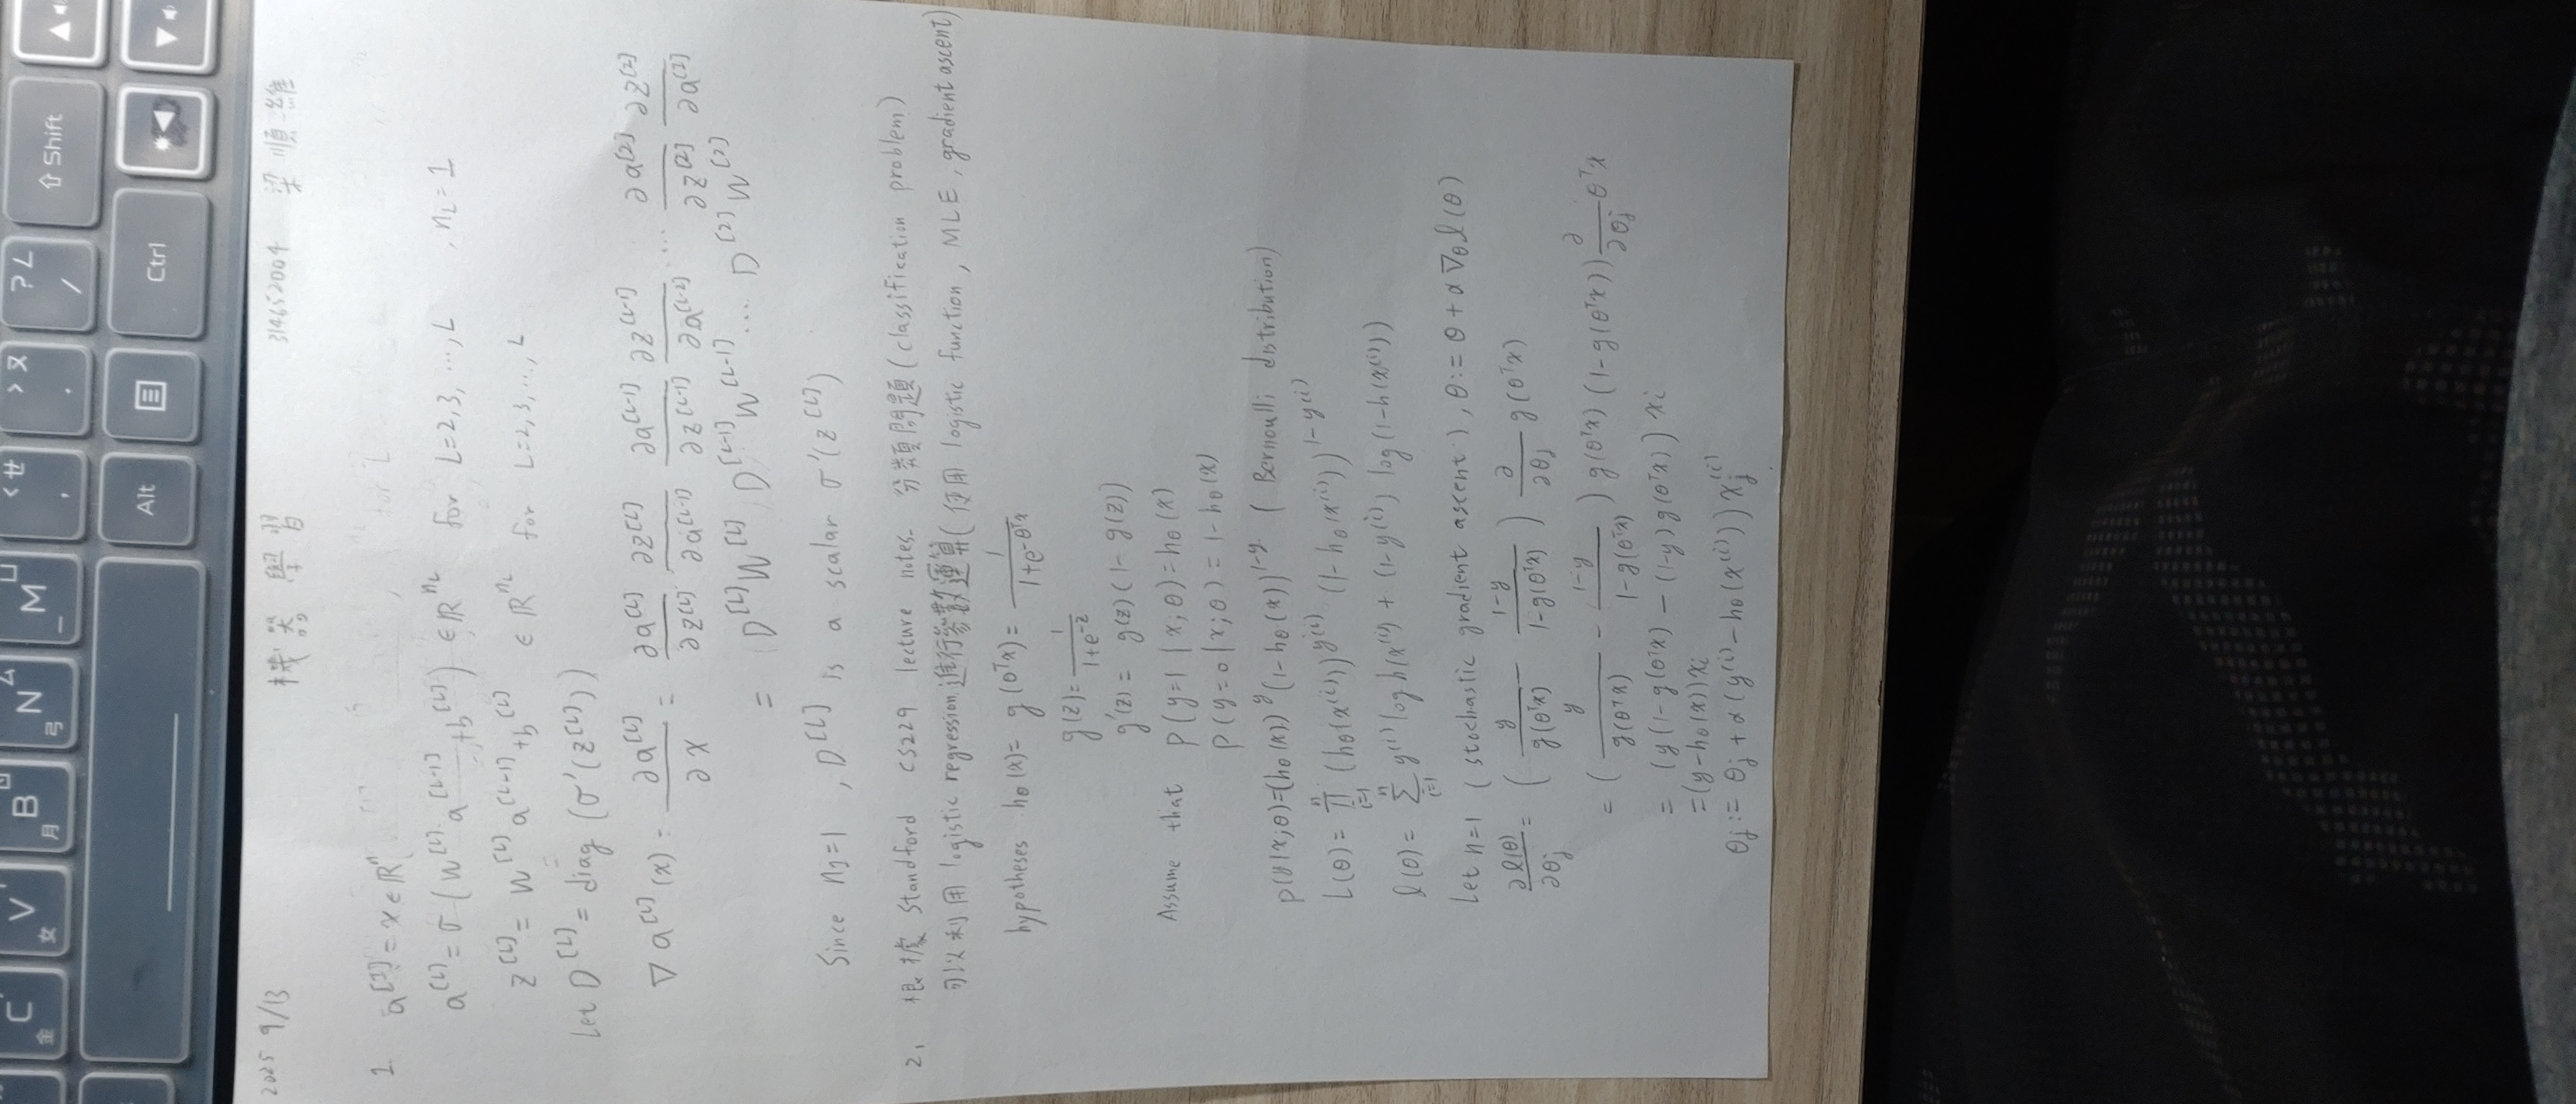 C 金
V 女
B 月
N ㄙ 弓
M ㄩ
< ㄝ ,
> ㄡ .
? ㄥ /
⇧ Shift
Alt
Ctrl
2025 9/13 機器學習 314652004 梁順維
1. a^[1] = x ∈ ℝ^n for L
a^[L] = σ(W^[L] a^[L-1] + b^[L]) ∈ ℝ^{n_L} for L=2,3,…,L , n_L = 1
z^[L] = W^[L] a^[L-1] + b^[L] ∈ ℝ^{n_L} for L=2,3,…,L
Let D^[L] = diag (σ'(z^[L]))
∇a^[L](x) = ∂a^[L]/∂x = ∂a^[L]/∂z^[L] ∂z^[L]/∂a^[L-1] ∂a^[L-1]/∂z^[L-1] ∂z^[L-1]/∂a^[L-2] … ∂a^[2]/∂z^[2] ∂z^[2]/∂a^[1]
= D^[L] W^[L] D^[L-1] W^[L-1] … D^[2] W^[2]
Since n_J=1 , D^[L] is a scalar σ'(z^[L])
2. 根據 Standford CS229 lecture notes. 分類問題(classification problem)
可以利用 logistic regression 進行參數運算(使用 logistic function, MLE, gradient ascent)
hypotheses h_θ(x) = g(θ^T x) = 1/(1+e^{-θ^T x})
g(z) = 1/(1+e^{-z})
g'(z) = g(z)(1-g(z))
Assume that P(y=1|x;θ) = h_θ(x)
P(y=0|x;θ) = 1-h_θ(x)
p(y|x;θ) = (h_θ(x))^y (1-h_θ(x))^{1-y} (Bernoulli distribution)
L(θ) = ∏_{i=1}^{n} (h_θ(x^(i)))^{y^(i)} (1-h_θ(x^(i)))^{1-y^(i)}
ℓ(θ) = ∑_{i=1}^{n} y^(i) log h(x^(i)) + (1-y^(i)) log(1-h(x^(i)))
Let n=1 (stochastic gradient ascent), θ := θ + α ∇_θ ℓ(θ)
∂ℓ(θ)/∂θ_j = ( y/g(θ^T x) - (1-y)/(1-g(θ^T x)) ) ∂/∂θ_j g(θ^T x)
= ( y/g(θ^T x) - (1-y)/(1-g(θ^T x)) ) g(θ^T x) (1-g(θ^T x)) ∂/∂θ_j θ^T x
= (y(1-g(θ^T x) - (1-y)g(θ^T x)) x_i
= (y-h_θ(x)) x_i
θ_j := θ_j + α(y^(i) - h_θ(x^(i))) x_j^(i)